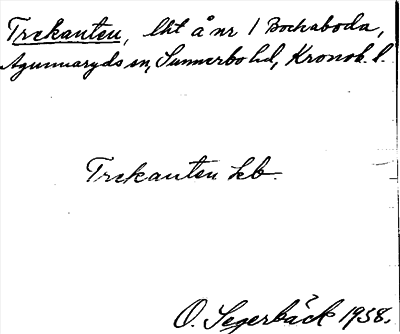 Trekanten, lht å nr 1 Bockaboda,
Agunnaryds sn, Sunnerbo hd, Kronob. l.
Trekanten lb.
O. Segerbäck 1938.